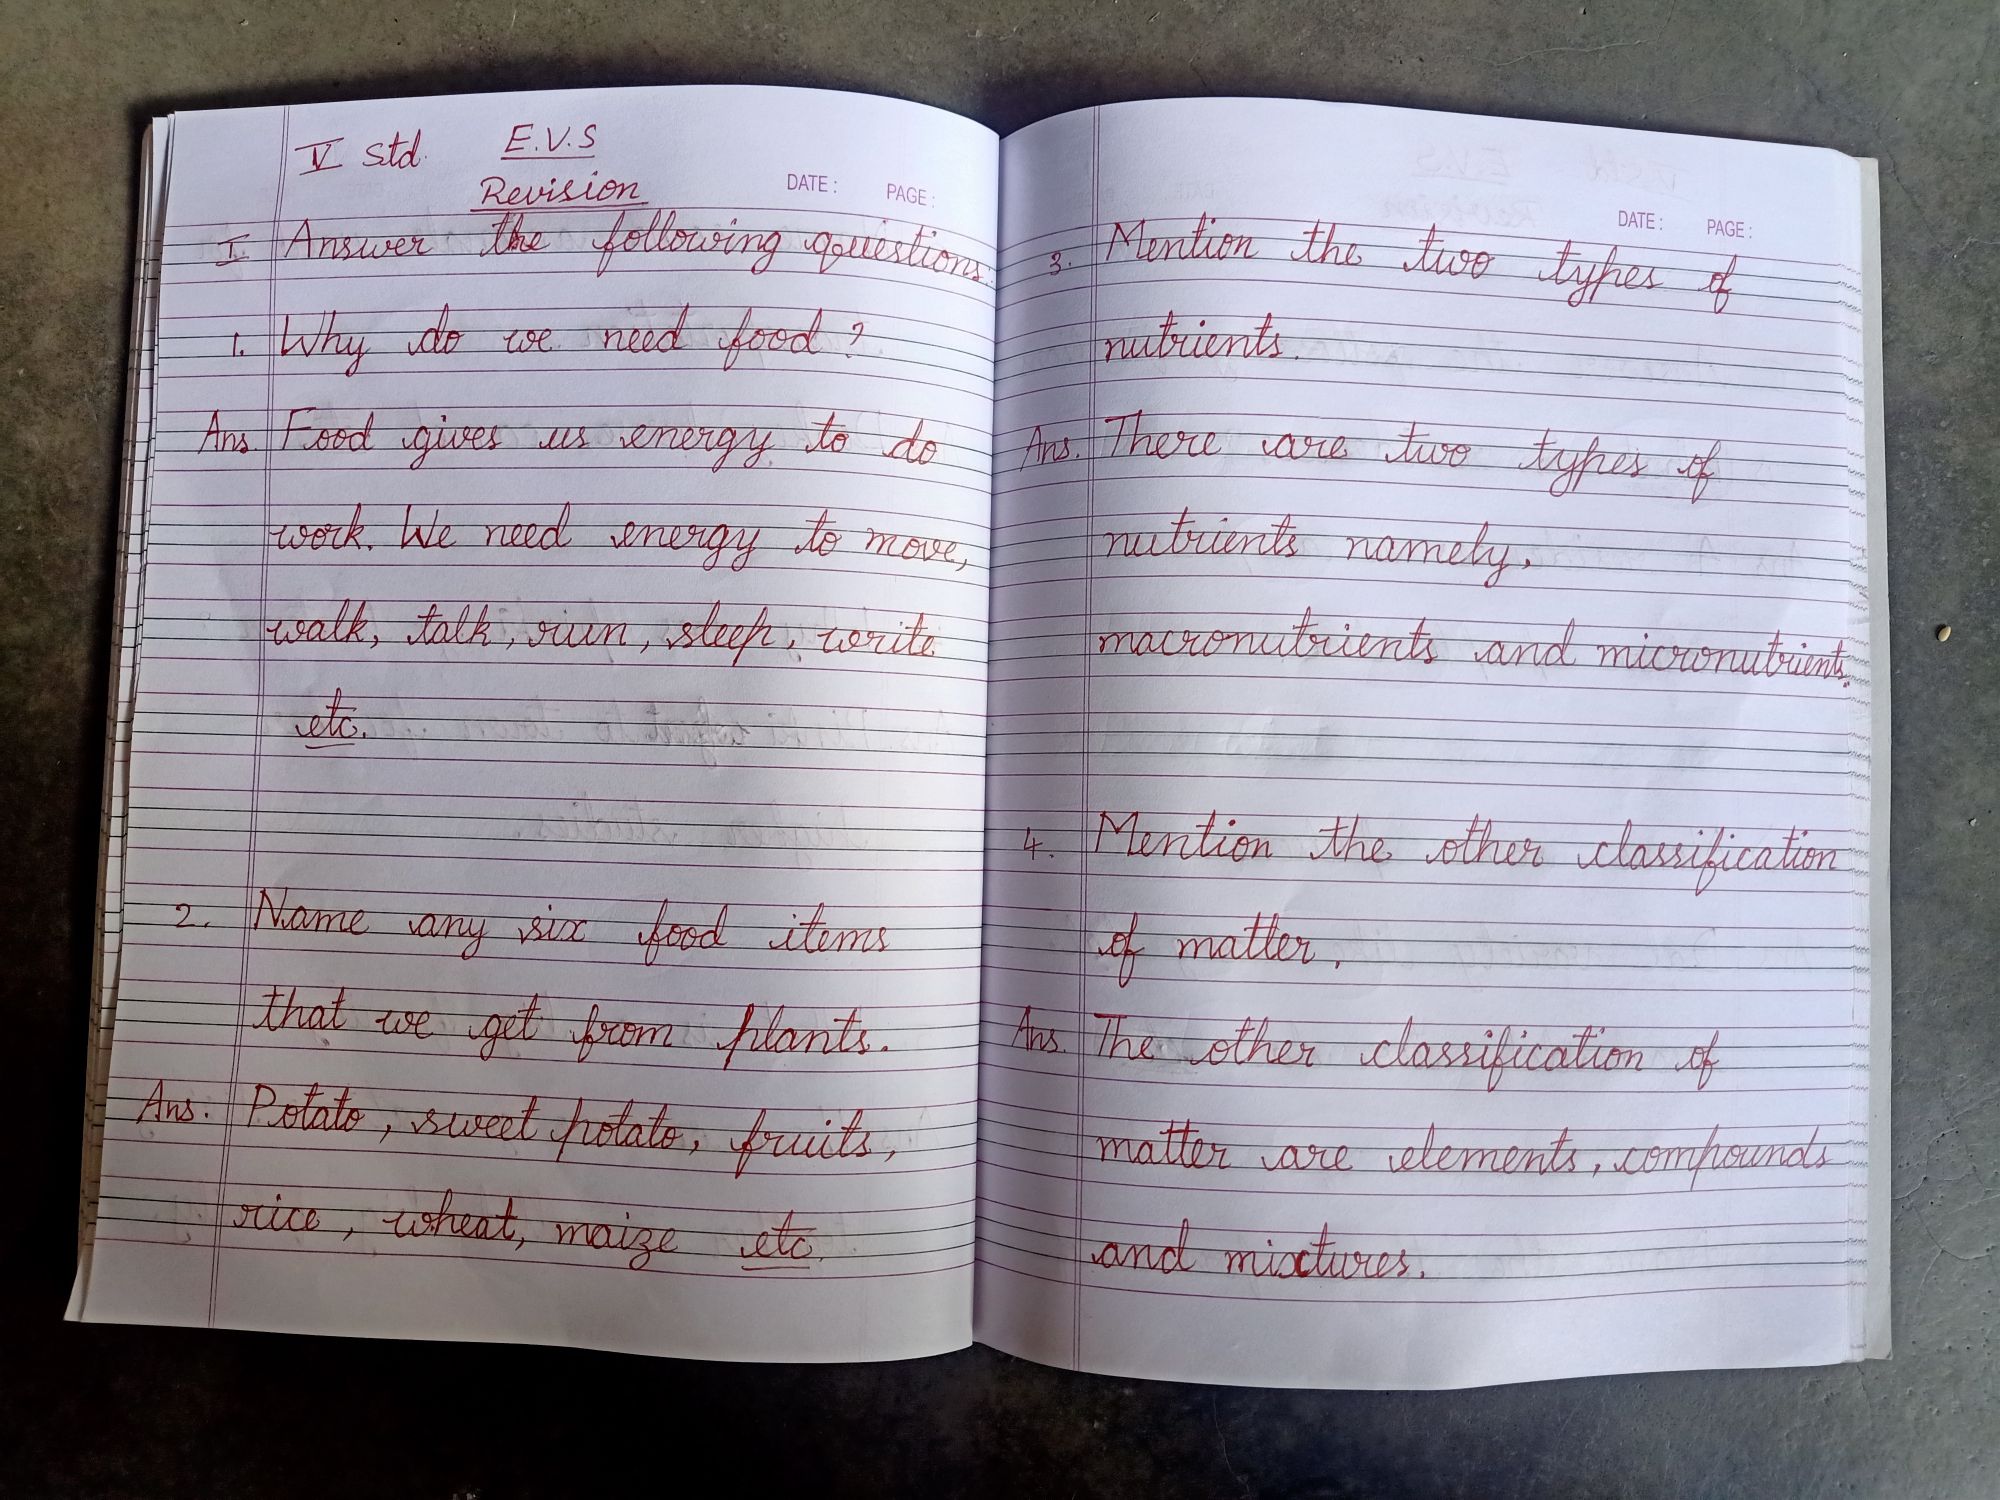 V Std.
E.V.S
Revision
DATE: PAGE:
I. Answer the following questions:
1. Why do we need food?
Ans. Food gives us energy to do
work. We need energy to move,
walk, talk, run, sleep, write
etc.
2. Name any six food items
that we get from plants.
Ans. Potato, sweet potato, fruits,
rice, wheat, maize etc.
DATE: PAGE:
3. Mention the two types of
nutrients.
Ans. There are two types of
nutrients namely,
macronutrients and micronutrients.
4. Mention the other classification
of matter.
Ans. The other classification of
matter are elements, compounds
and mixtures.